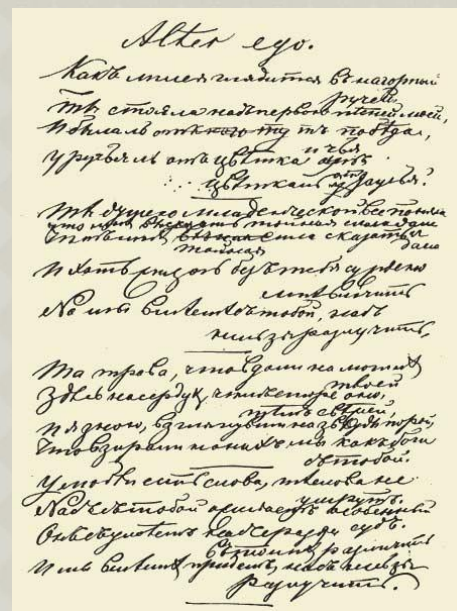 Alter ego.
Какъ лилея глядится въ нагорный
ручей,
Ты стояла надъ первою пѣсней моей,
И была ли побѣда,
и чья
У ручья ль отъ цвѣтка
цвѣтка ль отъ ручья?
Ты душею младенческой все поняла
Что мнѣ высказать тайная сила дала
сила сказать
тайная
дала
И хоть жизнь безъ тебя суждено
мнѣ влачить
Но мы вмѣстѣ съ тобой, насъ
нельзя разлучить.
Та трава, что вдали на могилѣ
твоей
Здѣсь на сердцѣ, чѣмъ старе оно,
тѣмъ свѣжей,
И я знаю, взглянувши на звѣзды порой,
Что взирали на нихъ мы какъ боги
съ тобой.
У любви есть слова, тѣ слова не
умрутъ.
Насъ съ тобой ожидаетъ особенный
судъ.
Онъ съумѣетъ насъ сразу
въ толпѣ различить
И мы вмѣстѣ придемъ, насъ нельзя
разлучить.